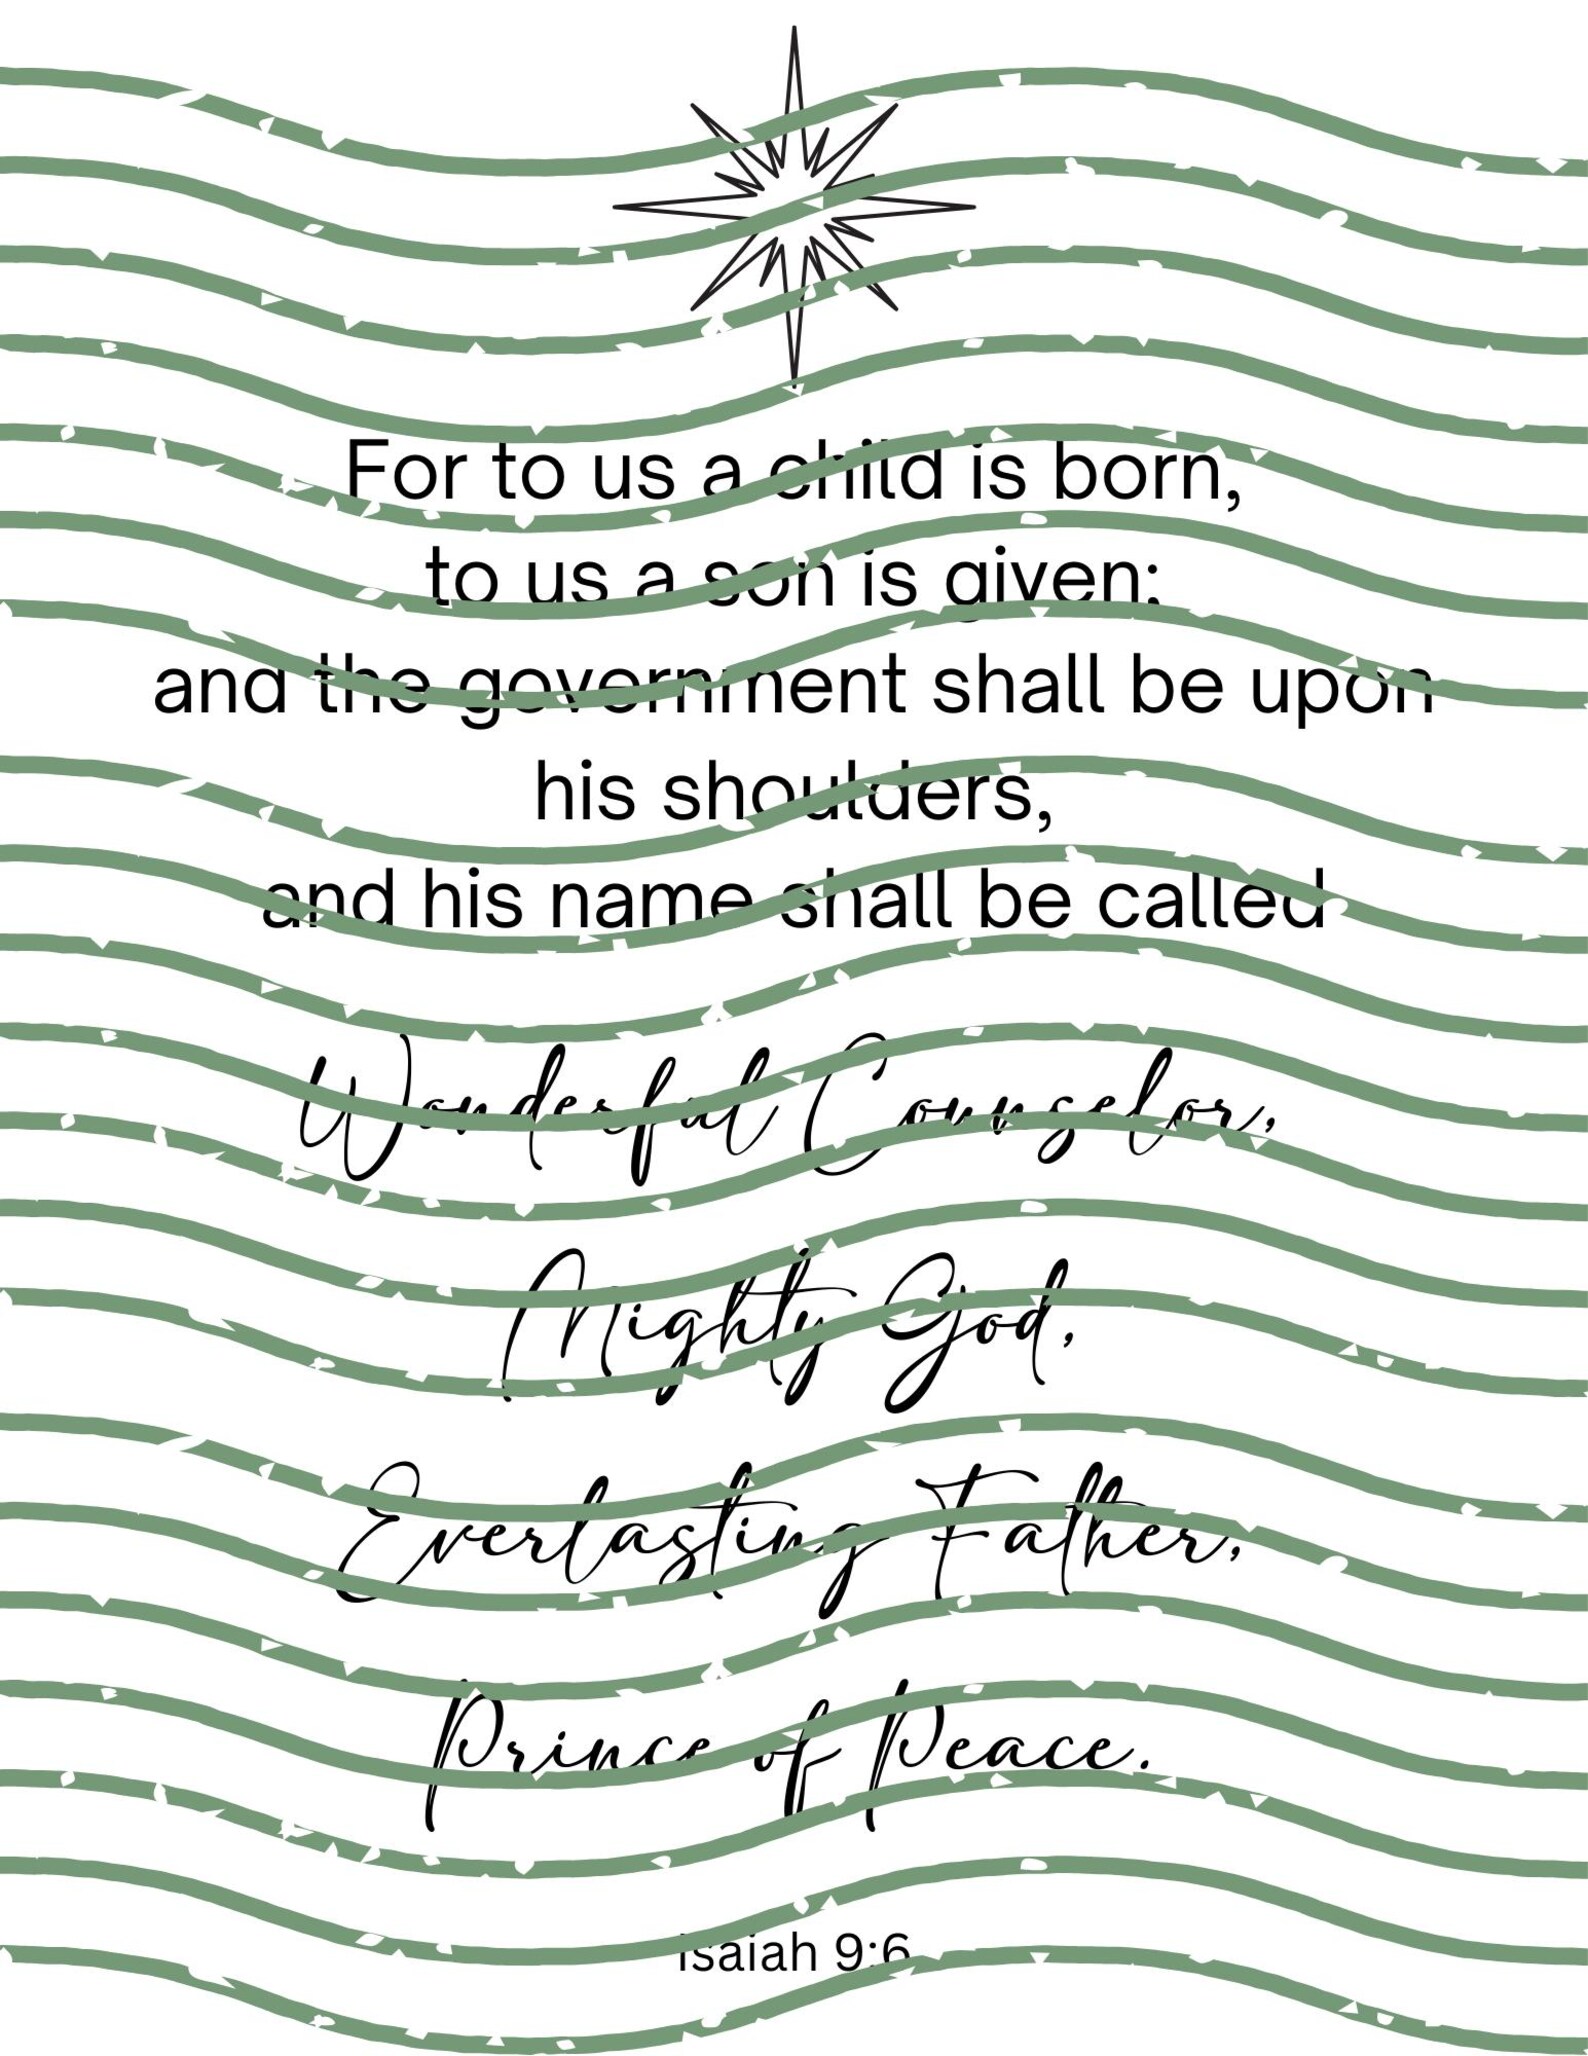 For to us a child is born,
to us a son is given;
and the government shall be upon
his shoulders,
and his name shall be called
Wonderful Counselor,
Mighty God,
Everlasting Father,
Prince of Peace.
Isaiah 9:6